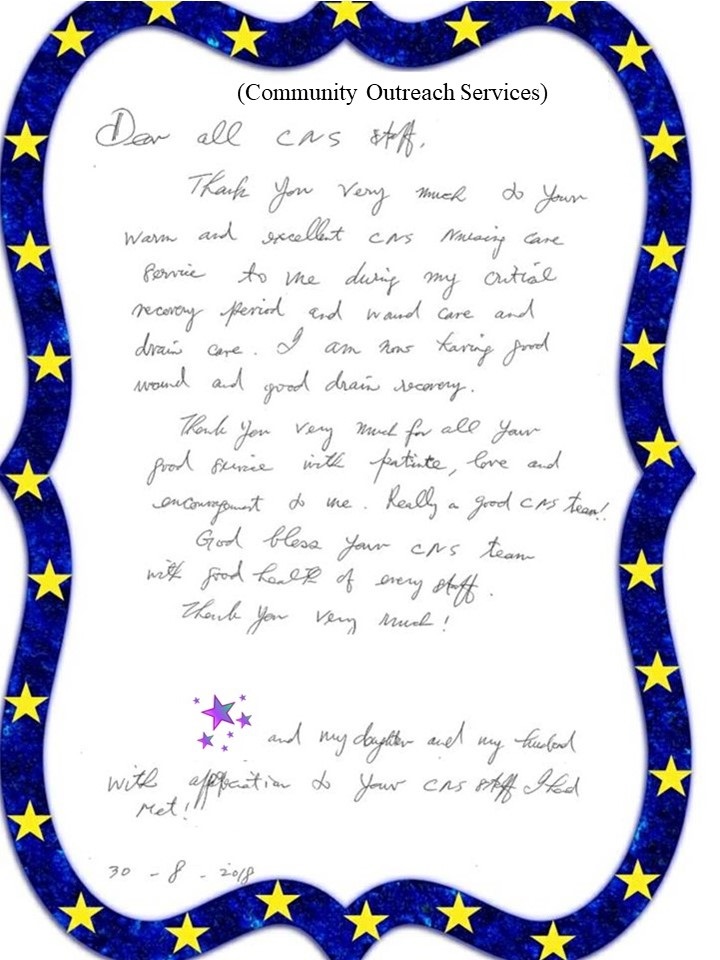 (Community Outreach Services)
Dear all CNS staff,
Thank you very much to your
warm and excellent CNS Nursing care
service to me during my critial
recovery period and wound care and
drain care. I am now having good
wound and good drain recovery.
Thank you very much for all your
good service with patinte, love and
encouragement to me. Really a good CNS team!
God bless your CNS team
with good health of every staff.
Thank you very much!
and my daughter and my husband
with appreciation to your CNS staff I had
met!
30 - 8 - 2018